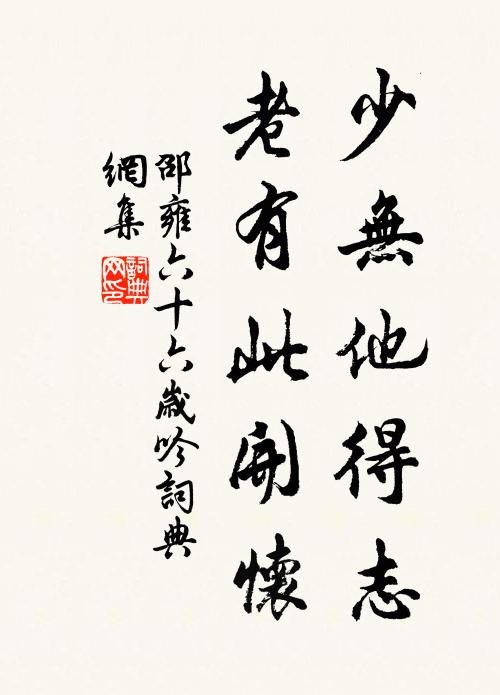 少無他得志
老有此開懷
邵雍六十六歲吟詞典
網集
詞典
網印